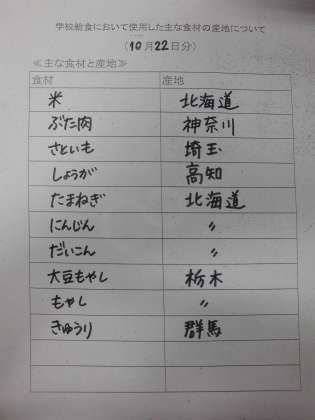 学校給食において使用した主な食材の産地について
(10月22日分)
≪主な食材と産地≫
食材 産地
米 北海道
ぶた肉 神奈川
さといも 埼玉
しょうが 高知
たまねぎ 北海道
にんじん 〃
だいこん 〃
大豆もやし 栃木
もやし 〃
きゅうり 群馬